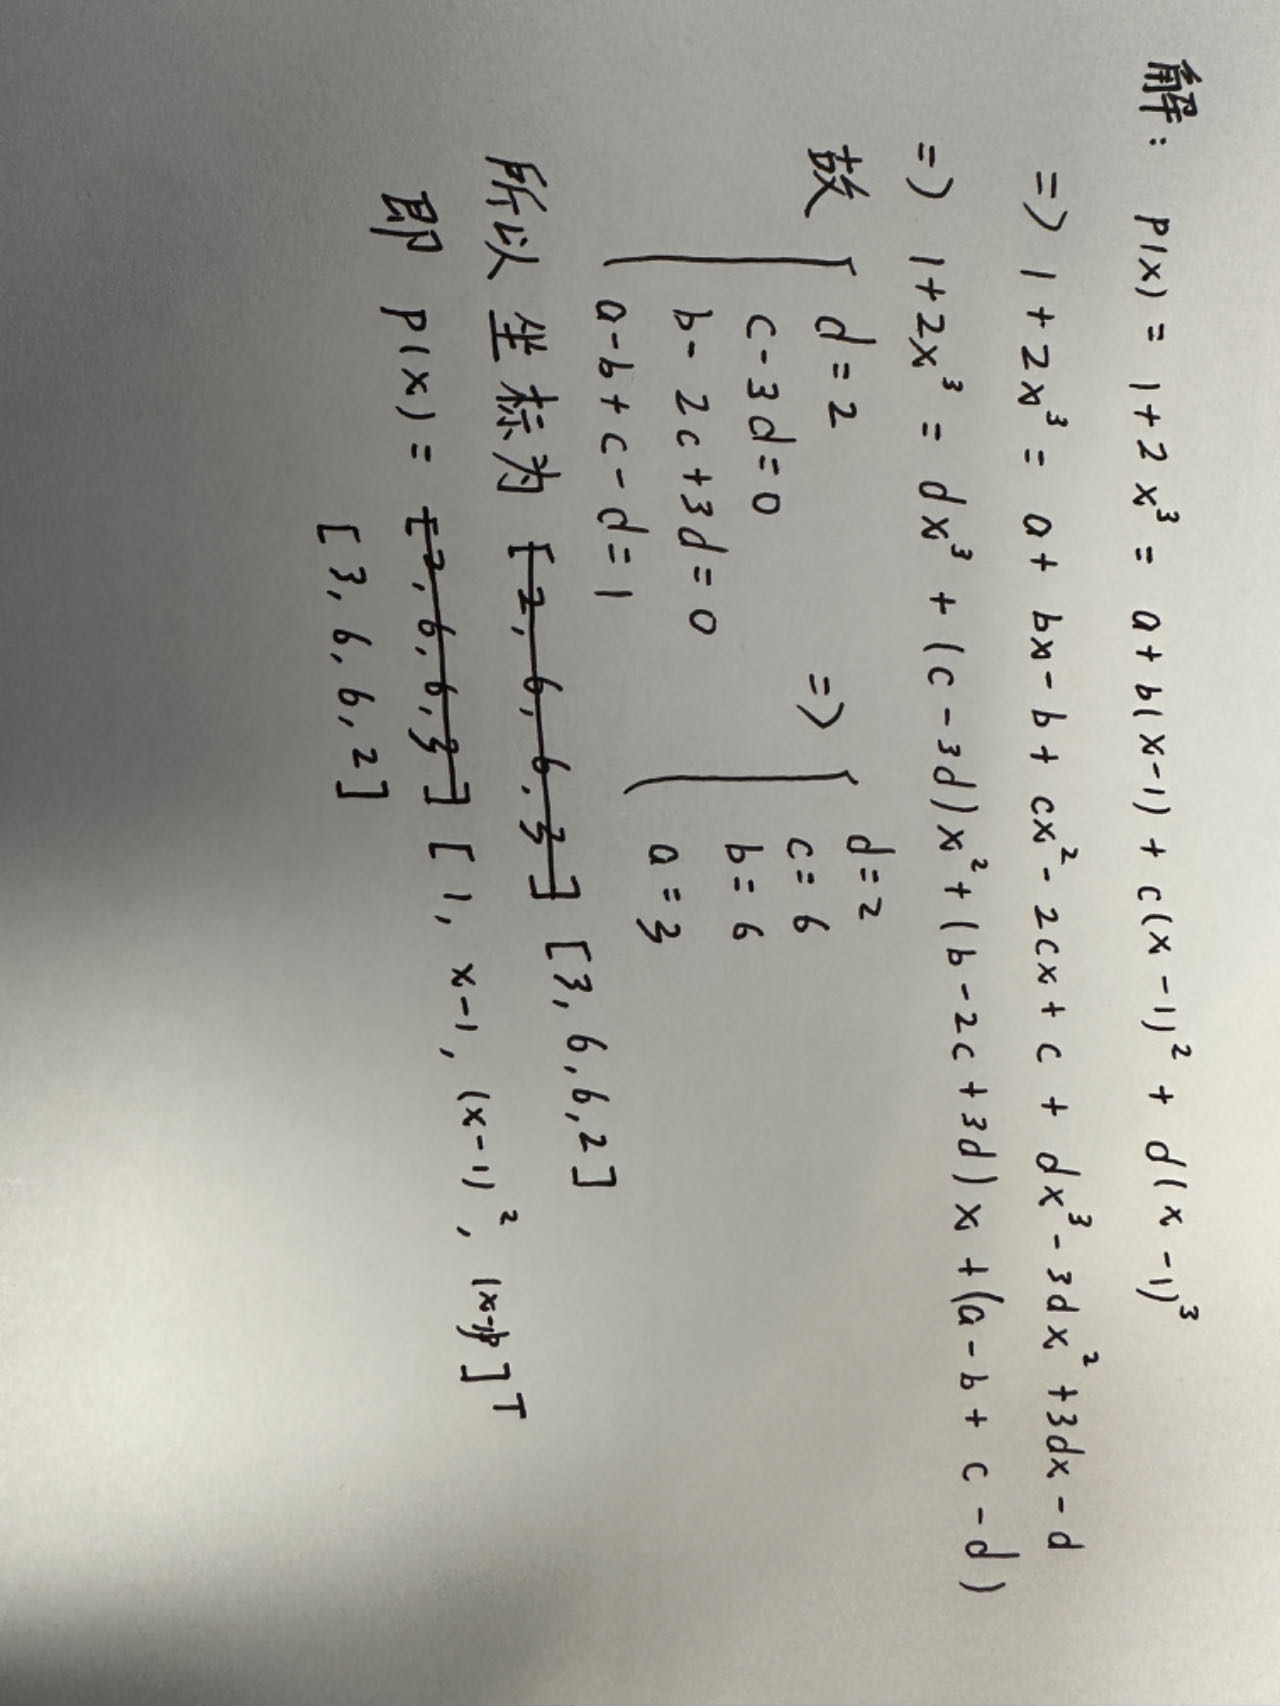 解: p(x) = 1+2x³ = a+b(x-1)+c(x-1)²+d(x-1)³
=) 1+2x³ = a+bx-b+cx²-2cx+c+dx³-3dx²+3dx-d
=) 1+2x³ = dx³+(c-3d)x²+(b-2c+3d)x+(a-b+c-d)
故 { d=2 =) { d=2
c-3d=0 c=6
b-2c+3d=0 b=6
a-b+c-d=1 a=3
所以坐标为 [2,6,6.3] [3,6,6,2]
即 p(x)= [2,6,6,3] [1, x-1, (x-1)², (x-1)³]ᵀ
[3,6,6,2]